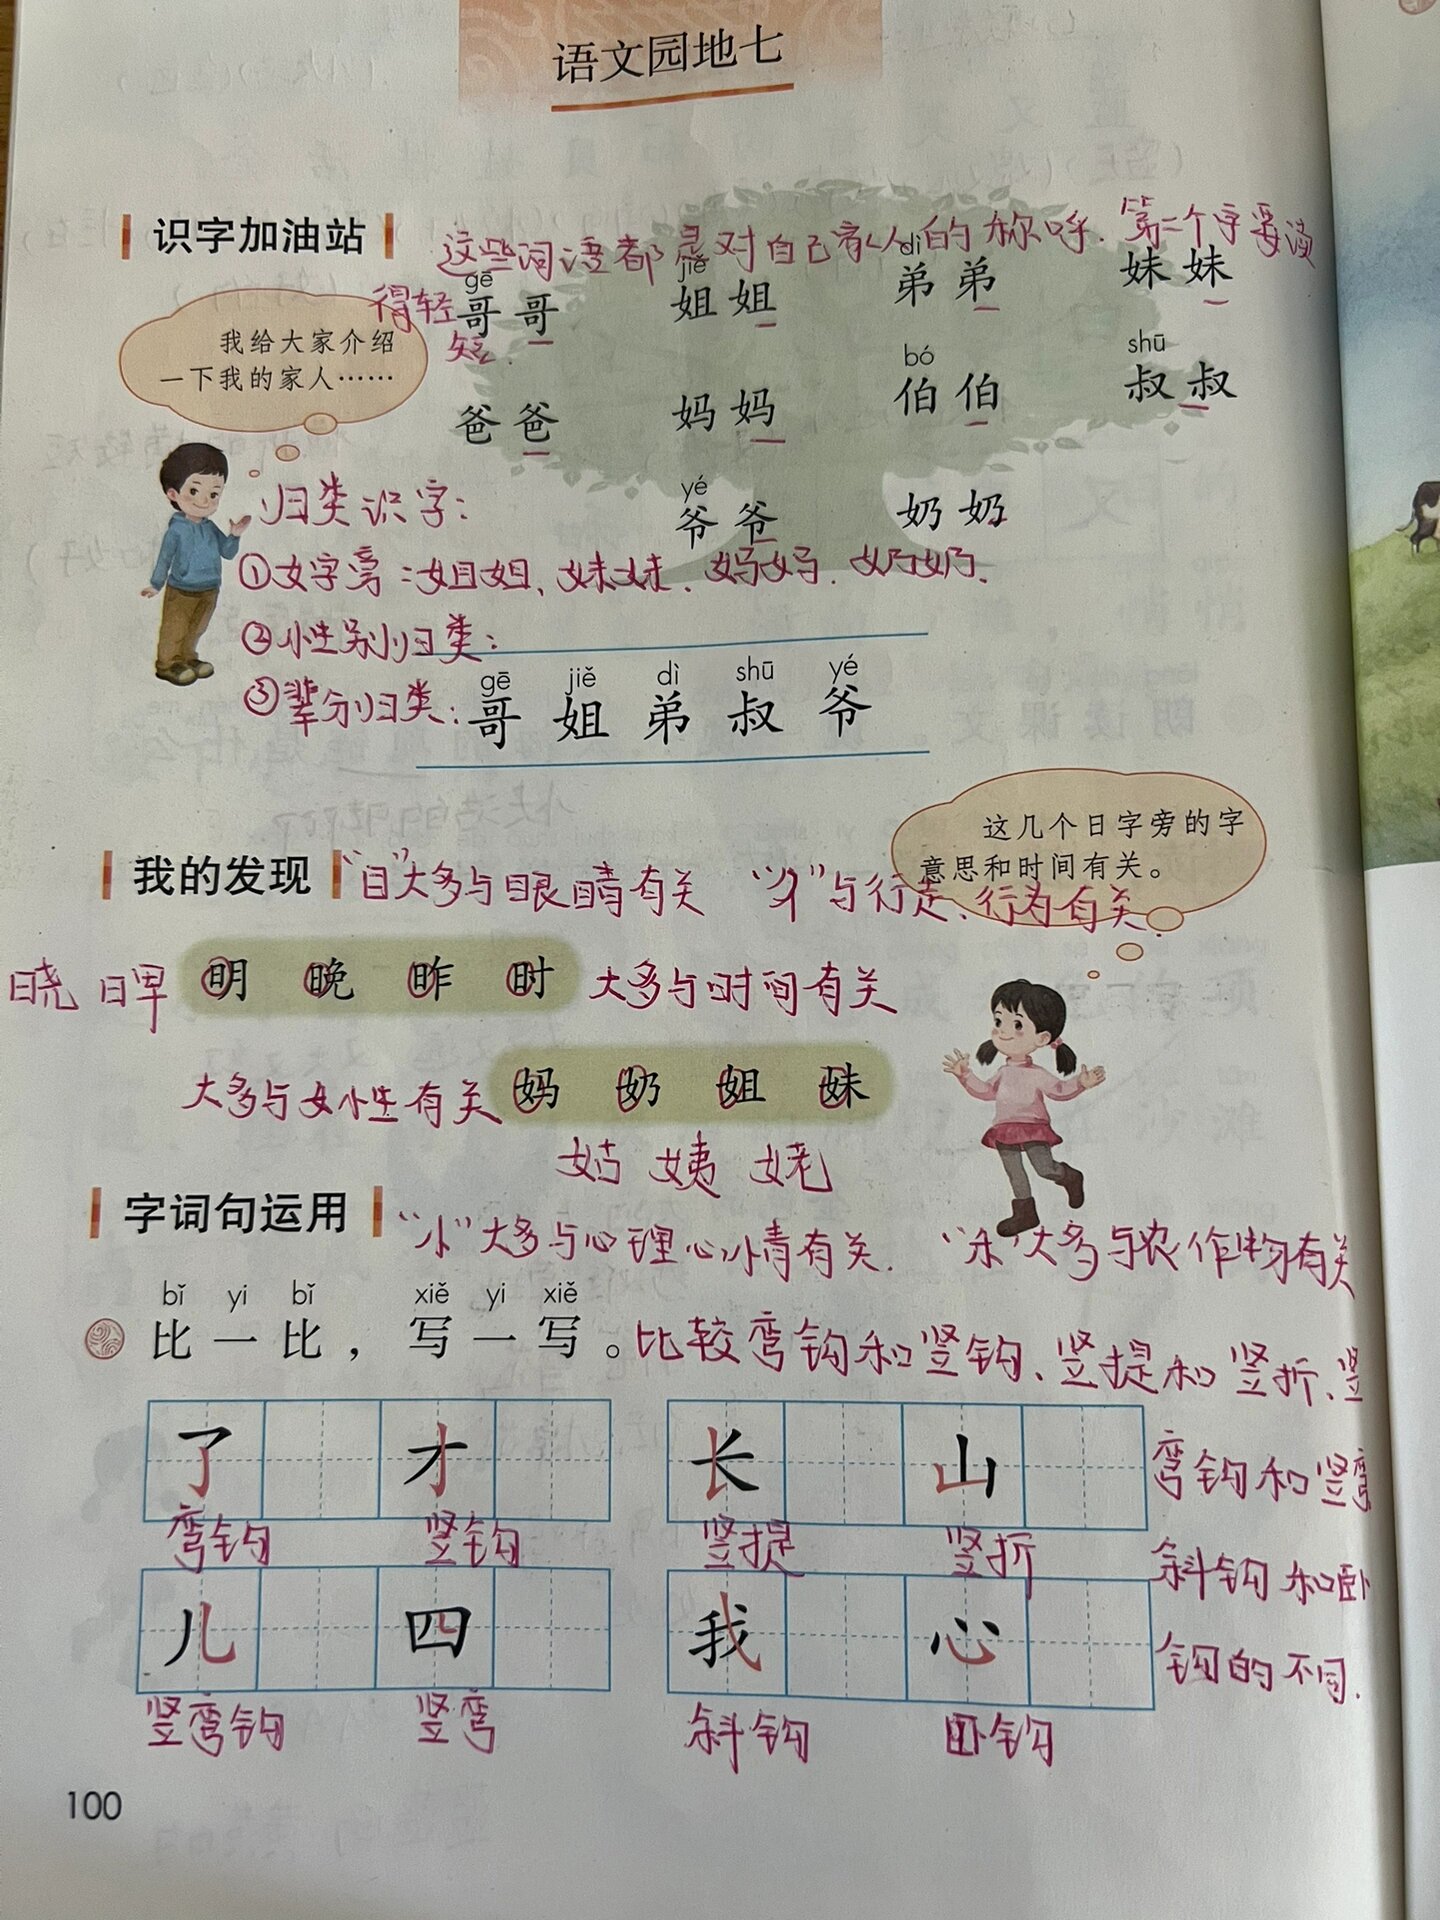 语文园地七
识字加油站
这些词语都是对自己家人的称呼.第二个字要读
得轻
短.
我给大家介绍
一下我的家人……
gē jiě dì
哥哥 姐姐 弟弟 妹妹
bó shū
爸爸 妈妈 伯伯 叔叔
yé
爷爷 奶奶
归类识字:
①女字旁:姐姐、妹妹.妈妈.奶奶.
②性别归类:
③辈分归类:
gē jiě dì shū yé
哥 姐 弟 叔 爷
这几个日字旁的字
意思和时间有关。
我的发现
“目”大多与眼睛有关 “彳”与行走、行为有关.
晓 明 晚 昨 时 大多与时间有关
大多与女性有关 妈 奶 姐 妹
姑 姨 姥
字词句运用
“忄”大多与心理心情有关. “禾”大多与农作物有关
bǐ yi bǐ xiě yi xiě
比一比，写一写。
比较弯钩和竖钩、竖提和竖折、竖
弯钩和竖弯
斜钩和卧
钩的不同.
了 才 长 山
弯钩 竖钩 竖提 竖折
儿 四 我 心
竖弯钩 竖弯 斜钩 卧钩
100